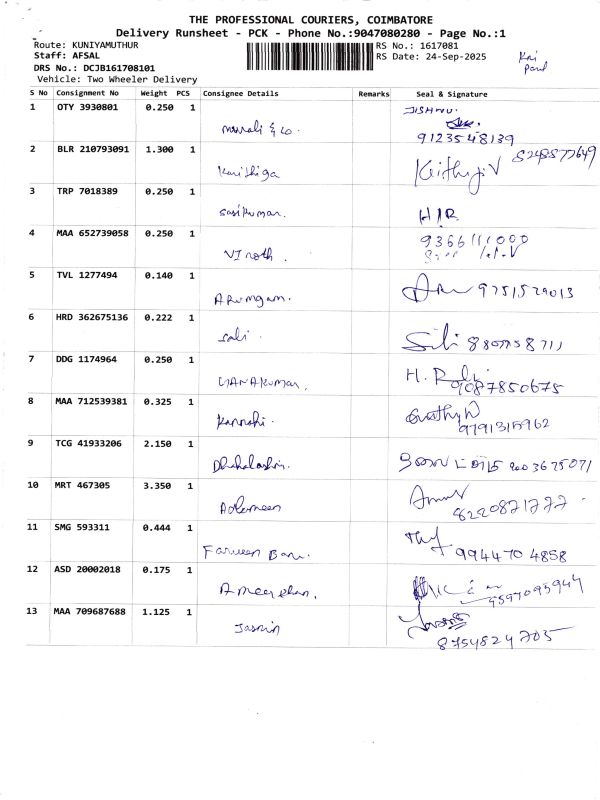 THE PROFESSIONAL COURIERS, COIMBATORE
Delivery Runsheet - PCK - Phone No.:9047080280 - Page No.:1
Route: KUNIYAMUTHUR
RS No.: 1617081
Staff: AFSAL
RS Date: 24-Sep-2025
DRS No.: DCJB161708101
Vehicle: Two Wheeler Delivery
S No Consignment No Weight PCS Consignee Details Remarks Seal & Signature
1 OTY 3930801 0.250 1 JISHNU.
murali & co. 9123548139
2 BLR 210793091 1.300 1 8248577649
Karthiga
3 TRP 7018389 0.250 1
Sasikumar. HIR
4 MAA 652739058 0.250 1 9366111000
Vinoth.
5 TVL 1277494 0.140 1
Arumgam. 9751529013
6 HRD 362675136 0.222 1
Sali.
7 DDG 1174964 0.250 1 H.
9087850675
8 MAA 712539381 0.325 1
Kannaki. 9791315962
9 TCG 41933206 2.150 1
10 MRT 467305 3.350 1
8220871777
11 SMG 593311 0.444 1
Farveen Banu. 9944704858
12 ASD 20002018 0.175 1
9597095944
13 MAA 709687688 1.125 1
Jasmin 8754824705